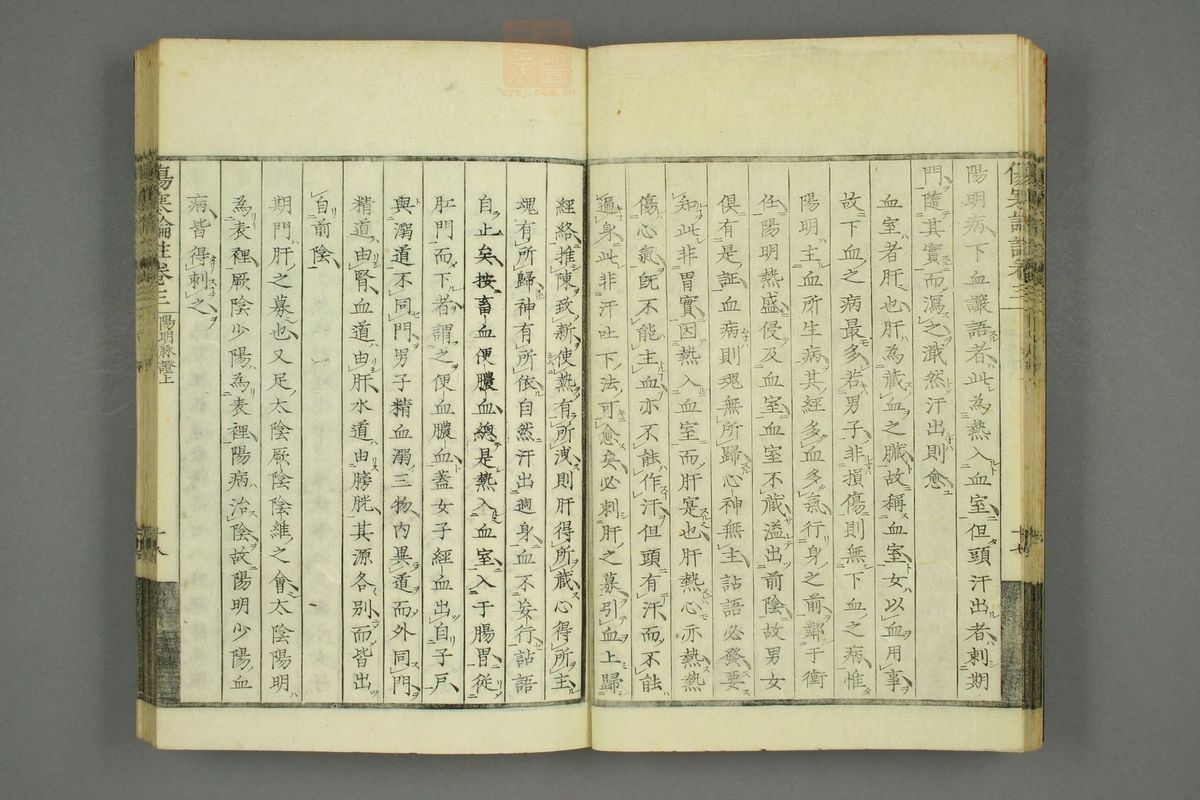 陽明病下血讝語者此為熱入血室但頭汗出者刺期
門隨其實而瀉之濈然汗出則愈
血室者肝也肝為藏血之臟故稱血室女以血用事
故下血之病最多若男子非損傷則無下血之病惟
陽明主血所生病其經多血多氣行身之前鄰于衝
任陽明熱盛侵及血室血室不藏溢出前陰故男女
俱有是証血病則魂無所歸心神無主詀語必發要
知此非胃實因熱入血室而肝寔也肝熱心亦熱熱
傷心氣旣不能主血亦不能作汗但頭有汗而不能
遍身此非汗吐下法可愈矣必刺肝之募引血上歸
經絡推陳致新使熱有所洩則肝得所藏心得所主
魂有所歸神有所依自然汗出遍身血不妄行詀語
自止矣按畜血便膿血總是熱入血室入于腸胃從
肛門而下者謂之便血膿血蓋女子經血出自子戶
與溺道不同門男子精血溺三物內異道而外同門
精道由腎血道由肝水道由膀胱其源各別而皆出
自前陰
期門肝之募也又足太陰厥陰陰維之會太陰陽明
為表裡厥陰少陽為表裡陽病治陰故陽明少陽血
病皆得刺之
傷寒論註卷三
陽明脉證上